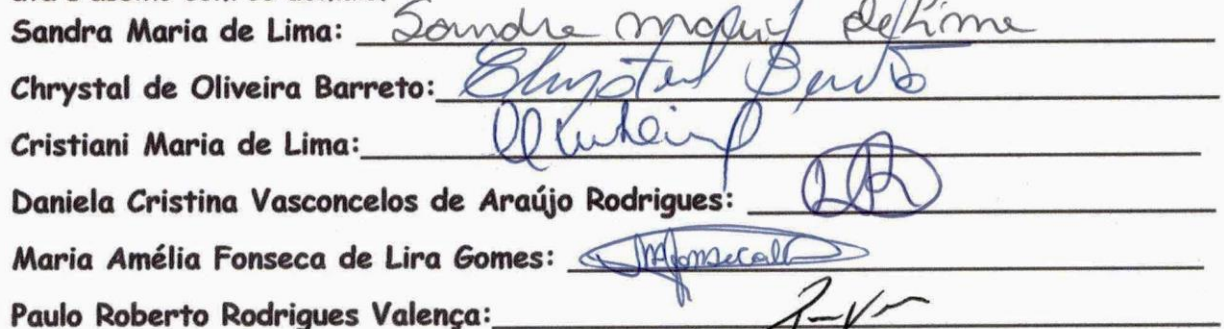 Sandra Maria de Lima: Sandra Maria de Lima
Chrystal de Oliveira Barreto: Chrystal
Cristiani Maria de Lima:
Daniela Cristina Vasconcelos de Araújo Rodrigues:
Maria Amélia Fonseca de Lira Gomes:
Paulo Roberto Rodrigues Valença: